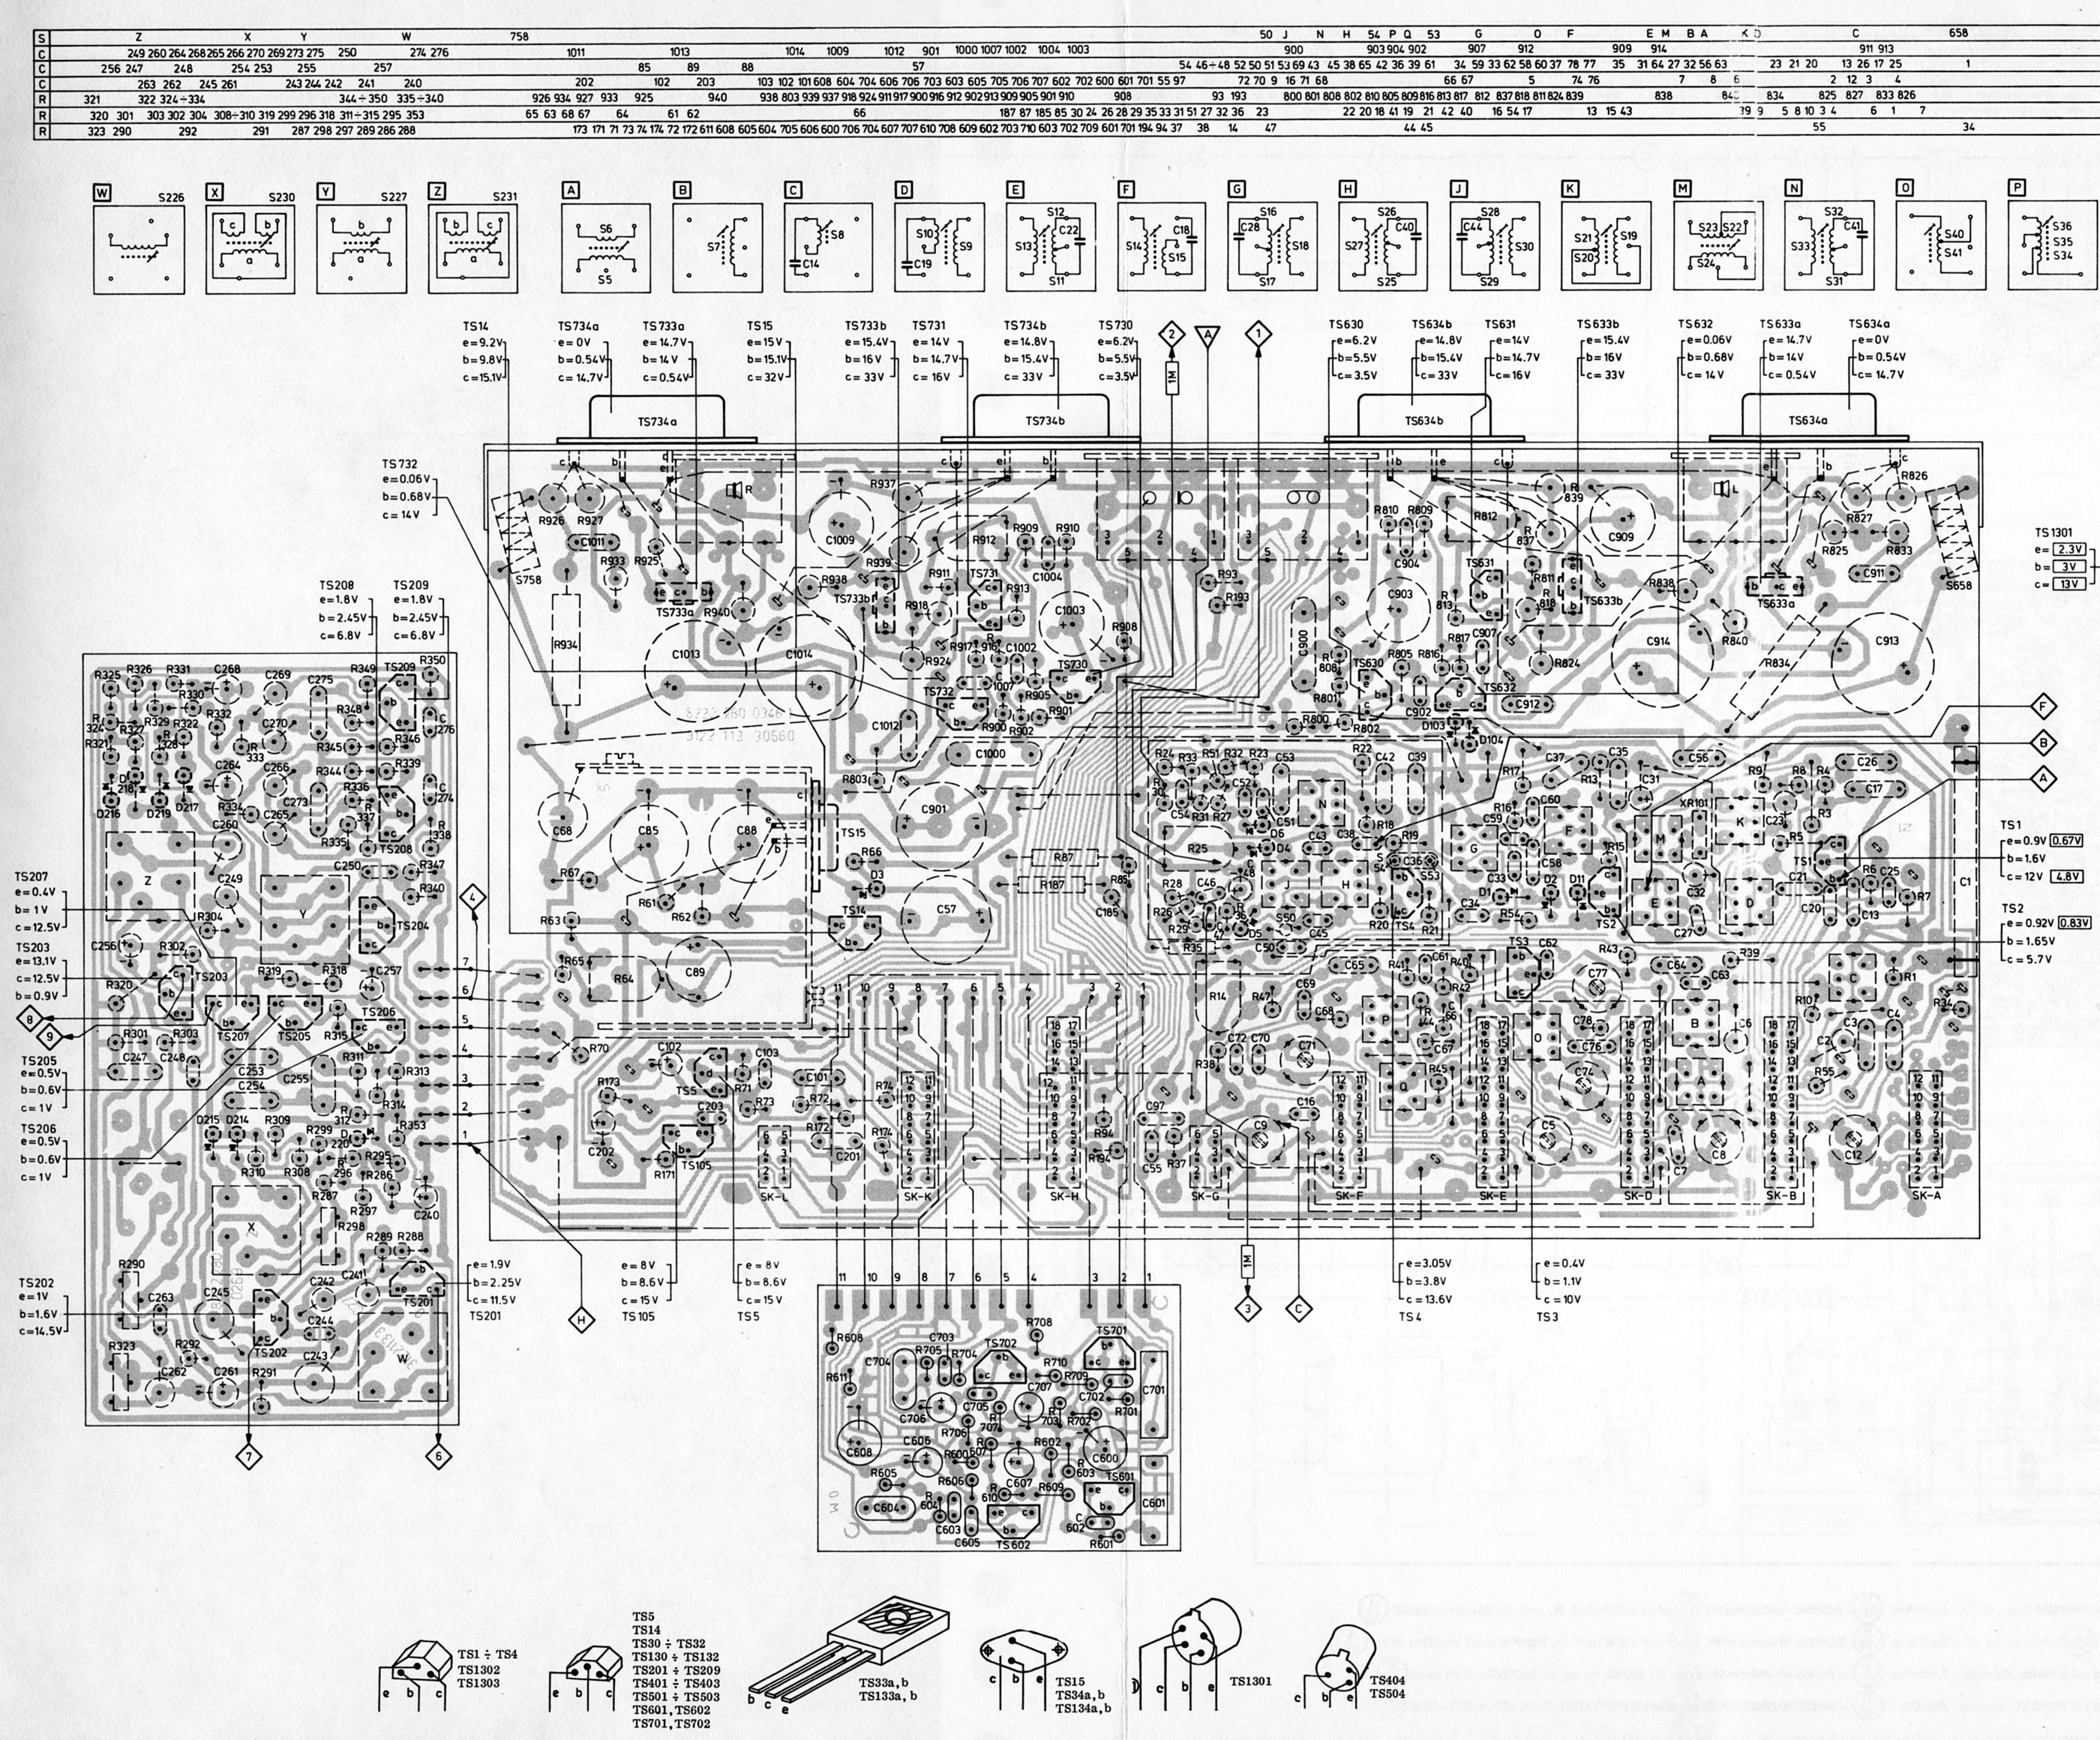 S Z X Y W 758 50 J N H 54 P Q 53 G O F E M B A K D C 658
C 249 260 264 268 265 266 270 269 273 275 250 274 276 1011 1013 1014 1009 1012 901 1000 1007 1002 1004 1003 900 903 904 902 907 912 909 914 911 913
C 256 247 248 254 253 255 257 85 89 88 57 54 46÷48 52 50 51 53 69 43 45 38 65 42 36 39 61 34 59 33 62 58 60 37 78 77 35 31 64 27 32 56 63 23 21 20 13 26 17 25 1
C 263 262 245 261 243 244 242 241 240 202 102 203 103 102 101 608 604 704 606 706 703 603 605 705 706 707 602 702 600 601 701 55 97 72 70 9 16 71 68 66 67 5 74 76 7 8 6 2 12 3 4
R 321 322 324÷334 344÷350 335÷340 926 934 927 933 925 940 938 803 939 937 918 924 911 917 900 916 912 902 913 909 905 901 910 908 93 193 800 801 808 802 810 805 809 816 813 817 812 837 818 811 824 839 838 834 825 827 833 826
R 320 301 303 302 304 308÷310 319 299 296 318 311÷315 295 353 65 63 68 67 64 61 62 66 187 87 185 85 30 24 26 28 29 35 33 31 51 27 32 36 23 22 20 18 41 19 21 42 40 16 54 17 13 15 43 39 9 5 8 10 3 4 6 1 7
R 323 290 292 291 287 298 297 289 286 288 173 171 71 73 74 174 72 172 611 608 605 604 705 606 600 706 704 607 707 610 708 609 602 703 710 603 702 709 601 701 194 94 37 38 14 47 44 45 55 34
W S226 X S230 Y S227 Z S231 A B C D E F G H J K M N O P
c b a
b a
b c a
S6 S5
S7
S8 C14
S10 S9 C19
S12 S13 C22 S11
S14 C18 S15
S16 C28 S18 S17
S26 S27 C40 S25
S28 C44 S30 S29
S21 S19 S20
S23 S22 S24
S32 S33 C41 S31
S40 S41
S36 S35 S34
TS14 e=9.2V b=9.8V c=15.1V
TS734a e=0V b=0.54V c=14.7V
TS733a e=14.7V b=14V c=0.54V
TS15 e=15V b=15.1V c=32V
TS733b e=15.4V b=16V c=33V
TS731 e=14V b=14.7V c=16V
TS734b e=14.8V b=15.4V c=33V
TS730 e=6.2V b=5.5V c=3.5V
2 1M A 1
TS630 e=6.2V b=5.5V c=3.5V
TS634b e=14.8V b=15.4V c=33V
TS631 e=14V b=14.7V c=16V
TS633b e=15.4V b=16V c=33V
TS632 e=0.06V b=0.68V c=14V
TS633a e=14.7V b=14V c=0.54V
TS634a e=0V b=0.54V c=14.7V
TS734a TS734b TS634b TS634a
TS732 e=0.06V b=0.68V c=14V
TS1301 e=2.3V b=3V c=13V
TS208 e=1.8V b=2.45V c=6.8V
TS209 e=1.8V b=2.45V c=6.8V
R926 R927 C1011 R925 R933 S758 R934 TS733a R940 C1013 C1014 R937 C1009 R938 R939 TS733b R912 R909 R910 C1004 R911 TS731 R913 R918 C1003 R908 R917 C1002 R924 TS730 TS732 R905 R901 R900 R902 C1012 C1000 R803
R93 R193 C900 R810 R809 C904 R812 R 839 R 837 C909 TS631 R811 TS633b C903 R 813 R 818 R838 R840 TS633a R826 R827 R825 R833 C911 S658 R817 C907 R 808 TS630 R805 R816 R824 C914 R834 C913 R801 TS632 C902 C912 R800 R802 D103 D104
8222 280 0346.1
3122 113 30560
R325 R326 R331 C268 C269 C275 R349 TS209 R350 R330 R332 R348 C 276 R 324 R329 R322 C270 R345 R346 R321 R327 R 333 C264 C266 R344 R339 D216 D219 D217 R334 C273 R336 C 274 C260 C265 R 337 R335 TS208 R 338
Z C249 C250 R347 R340 R304 Y TS204 C256 R302 R319 R318 C257 R320 TS203 TS207 TS205 TS206 R301 R303 R315 C247 C248 C253 R311 R313 C254 C255 R314 D215 D214 R309 R299 R 312 R353 R310 R308 R295 R286 R287 R297 C240 X R298 R289 R288
R290 C263 C245 C242 C241 TS201 C244 R292 TS202 C243 W R323 C262 C261 R291
TS207 e=0.4V b=1V c=12.5V
TS203 e=13.1V c=12.5V b=0.9V
8
9
TS205 e=0.5V b=0.6V c=1V
TS206 e=0.5V b=0.6V c=1V
TS202 e=1V b=1.6V c=14.5V
4
7 6 5 4 3 2 1
C68 C85 C88 TS15 R66 D3 R67 R61 R62 R63 TS14 C901 C57 R87 R187 R85 C185 R65 R64 C89 R70 C102 TS5 C103 R71 R173 R73 C101 R72 R74 C203 C202 R172 R174 C201 TS105 R171 SK-L SK-K SK-H SK-G SK-F SK-E SK-D SK-B SK-A
11 10 9 8 7 6 5 4 3 2 1
R24 R33 R51 R32 R23 C53 R22 C42 C39 R17 C37 R13 C35 C31 C56 R9 R8 R4 C26 C17 C52 C54 R31 R27 C51 N C60 R16 C59 XR101 K C23 R3 R5 D6 D4 C43 C38 R18 R19 F M TS1 R25 G R15 C58 C36 S53 R28 C46 J H C33 D1 D2 D11 C32 C21 R6 C25 R7 C1 R26 R29 D5 S50 C45 R20 TS4 R21 C34 R54 TS2 E C27 D C20 C13 R35 C50 C65 R41 C61 R40 TS3 C62 R43 C64 C63 R39 C R1 R14 R47 C69 C68 R42 C77 R10 R34 P C78 B C6 C3 C4 C72 C70 C71 C67 O C76 C2 R38 R45 C74 A R55 Q C97 C16 C9 C5 C7 C8 C12 R94 R194 C55 R37
F
B
A
TS1 e=0.9V 0.67V b=1.6V c=12V 4.8V
TS2 e=0.92V 0.83V b=1.65V c=5.7V
e=1.9V b=2.25V c=11.5V TS201
H
e=8V b=8.6V c=15V TS105
e=8V b=8.6V c=15V TS5
11 10 9 8 7 6 5 4 3 2 1
1M 3 C
e=3.05V b=3.8V c=13.6V TS4
e=0.4V b=1.1V c=10V TS3
R608 C703 R708 TS701 C704 R705 R704 TS702 R710 R611 R709 C701 C705 C707 C702 R701 C706 R702 R706 C608 C606 R600 R602 C600 R605 R606 C607 TS601 C601 C604 R609 C603 C605 TS602 C 602 R601
7 6
TS1 ÷ TS4
TS1302
TS1303
e b c
TS5
TS14
TS30 ÷ TS32
TS130 ÷ TS132
TS201 ÷ TS209
TS401 ÷ TS403
TS501 ÷ TS503
TS601, TS602
TS701, TS702
e b c
TS33a, b
TS133a, b
b c e
TS15
TS34a, b
TS134a, b
c b e
TS1301
D c b e
TS404
TS504
c b e